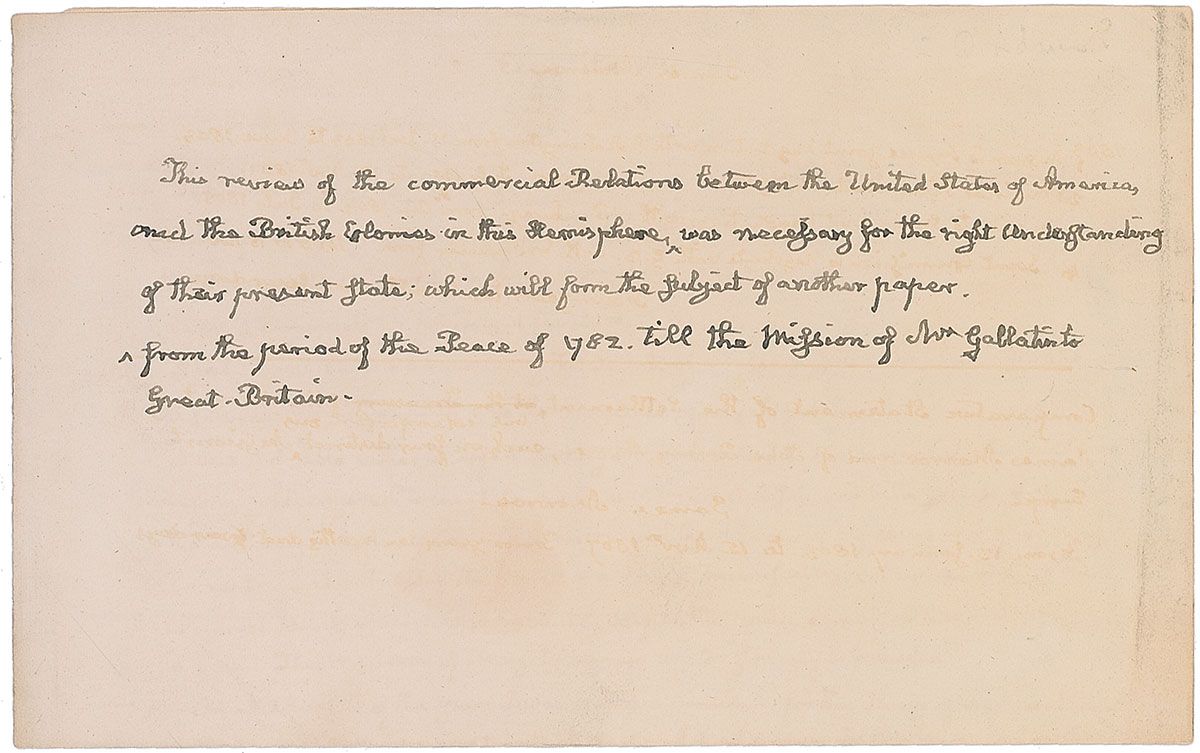 This review of the commercial Relations between the United States of America,
and the British Colonies in this Hemisphere,‸ was necessary for the right Understanding
of their present State; which will form the subject of another paper.
‸ from the period of the Peace of 1782. till the Mission of Mr Gallatin to
Great-Britain-